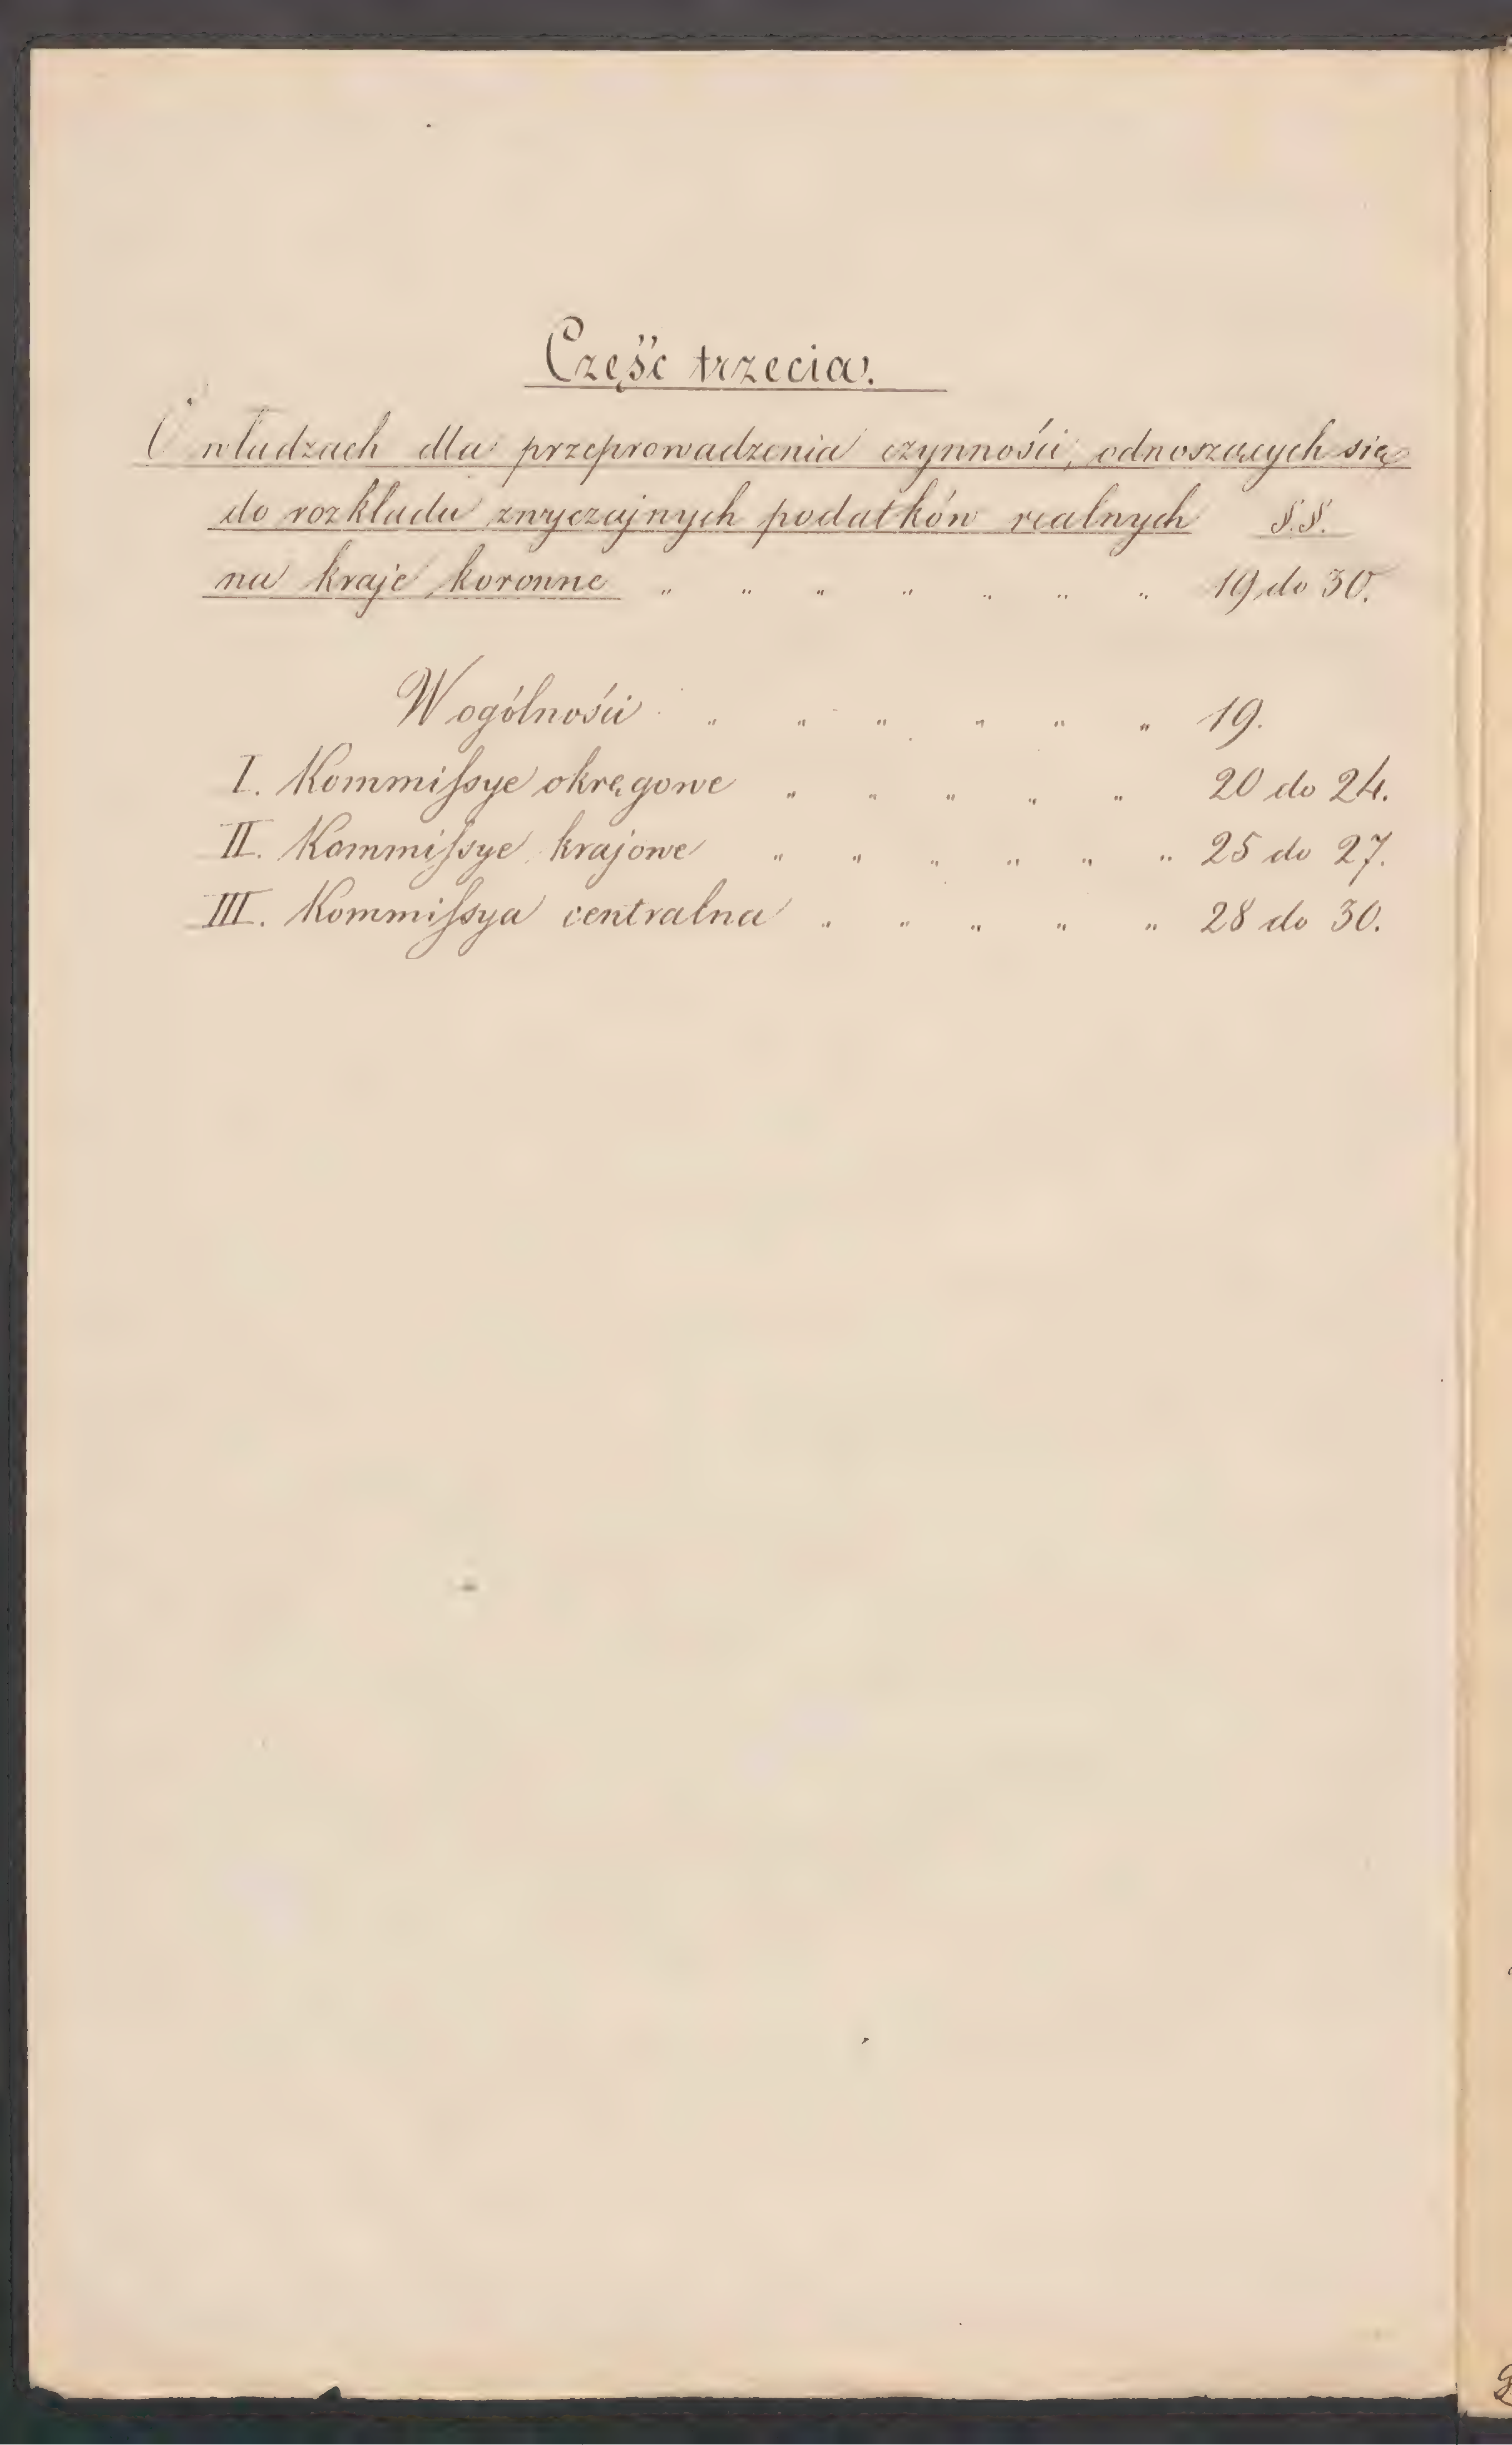 Część trzecia.
O władzach dla przeprowadzenia czynności, odnoszących się
do rozkładu zwyczajnych podatków realnych §.§.
na kraje koronne " " " " " " " 19 do 30.
W ogólności " " " " " " 19.
I. Kommiſsye okręgowe " " " " " 20 do 24.
II. Kommiſsye krajowe " " " " " " 25 do 27.
III. Kommiſsya centralna " " " " " 28 do 30.